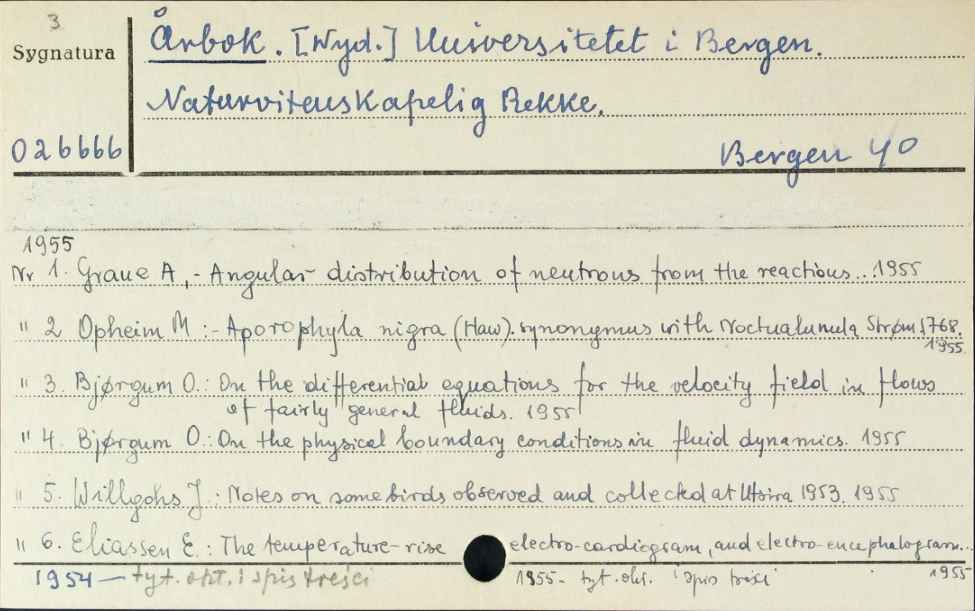 3
Sygnatura
Årbok. [Wyd.] Universitetet i Bergen.
Naturvitenskapelig Rekke.
026666
Bergen 40
1955
Nr 1. Graue A, - Angular distribution of neutrons from the reactions... 1955
" 2 Opheim M :- Aporophyla nigra (Haw). synonymus with Noctua lunula Strøm 1768.
1955
" 3. Bjørgum O.: On the differential equations for the velocity field in flows
of fairly general fluids. 1955
" 4. Bjørgum O.: On the physical boundary conditions in fluid dynamics. 1955
" 5. Willgohs J.: Notes on some birds observed and collected at Utsira 1953. 1955
" 6. Eliassen E.: The temperature-rise electro-cardiogram, and electro-encephalogram...
1955
1954 — tyt. okł. i spis treści
1955 - tyt. okł. i spis treści